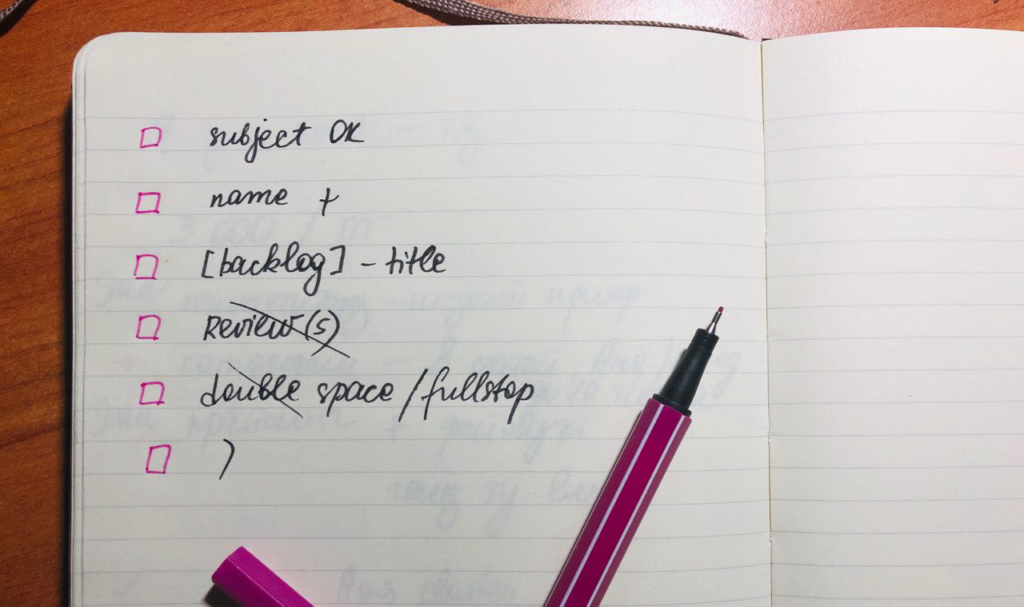 subject OK
name +
[backlog] - title
Review(s)
double space / fullstop
)